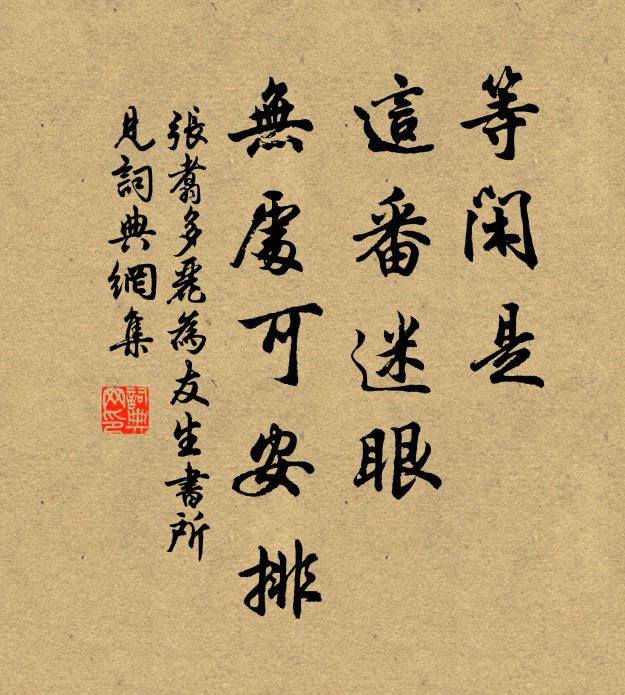 等閑是
這番迷眼
無處可安排
張翥多麗為友生書所
見詞典網集
詞典
网印